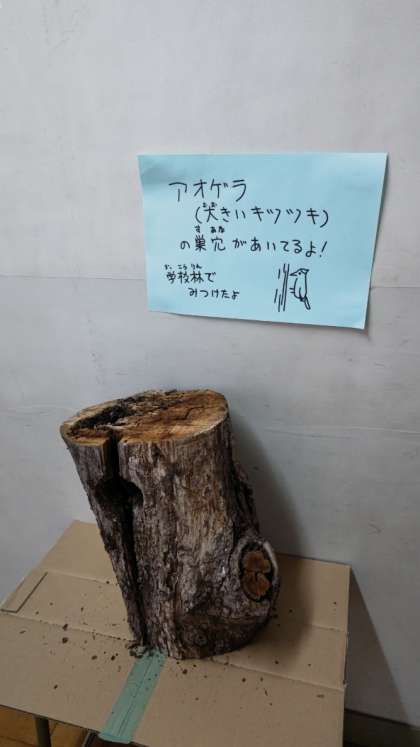 アオゲラ
(大きいキツツキ)
の巣穴があいてるよ!
学校林で
みつけたよ